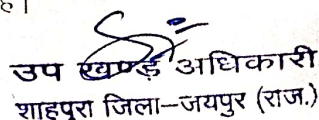 है।
उप खण्ड अधिकारी
शाहपुरा जिला–जयपुर (राज.)